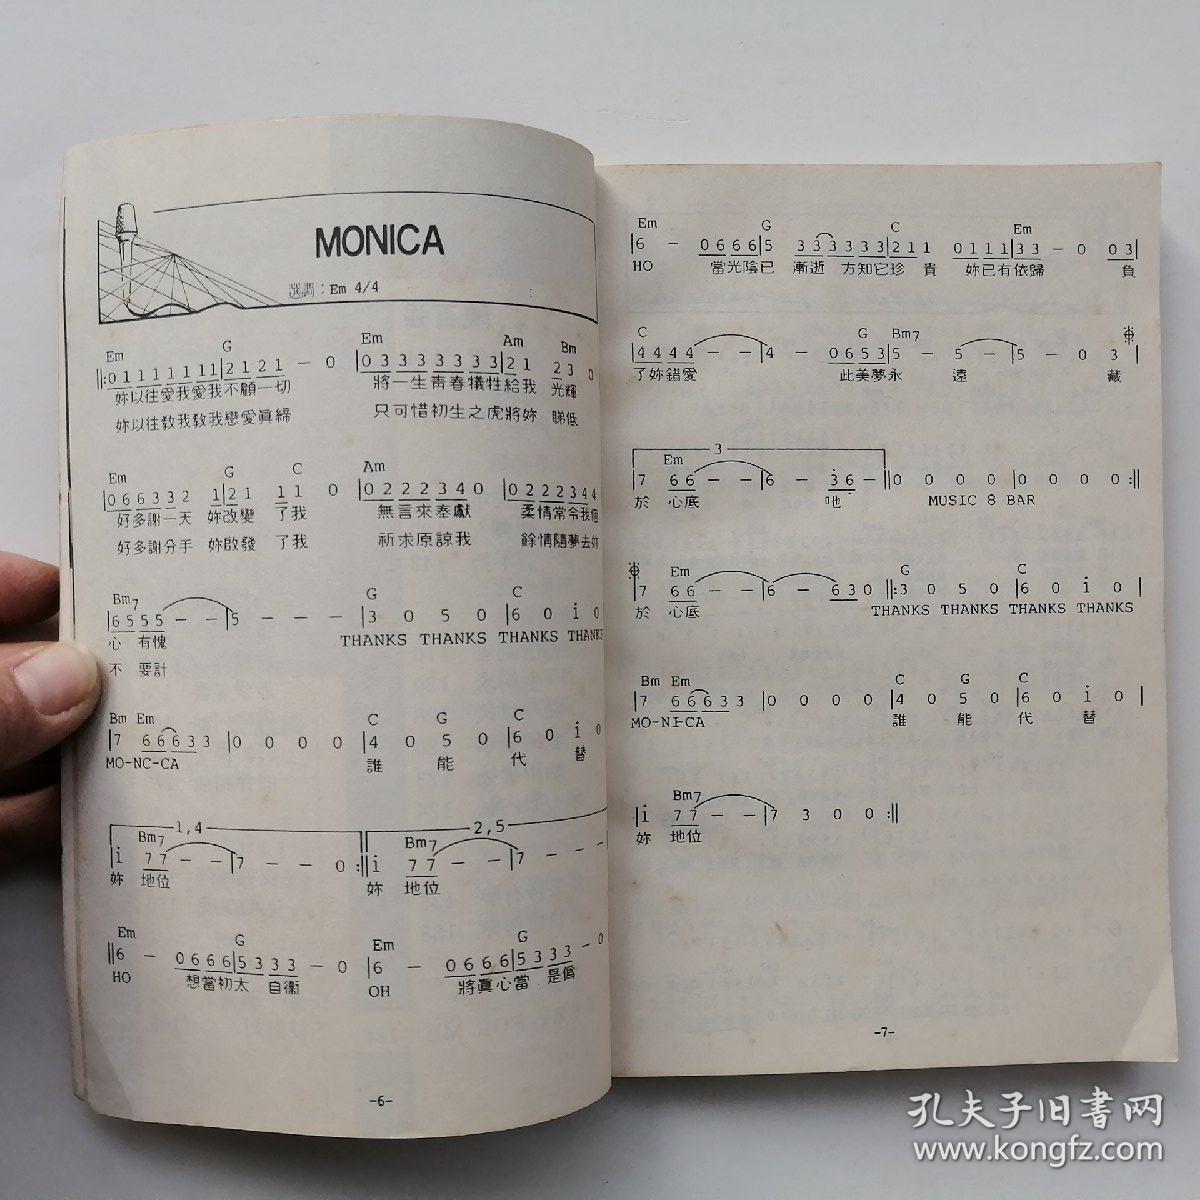 MONICA
選調：Em 4/4
Em G Em Am Bm
‖:0 1 1 1 1 1 1 1|2 1 2 1 - 0 |0 3 3 3 3 3 3 3|2 1 2 3 0
妳以往愛我愛我不顧一切 將一生青春犠牲給我 光輝
妳以往教我教我戀愛眞締 只可惜初生之虎將妳 睇低
Em G C Am
|0 6 6 3 3 2 1|2 1 1 1 0 |0 2 2 2 3 4 0 |0 2 2 2 3 4 4
好多謝一天 妳改變 了我 無言來奉獻 柔情常令我個
好多謝分手 妳啟發 了我 祈求原諒我 餘情隨夢去妳
Bm7 G C
|6 5 5 5 - - |5 - - - |3 0 5 0 |6 0 i 0
心 有愧 THANKS THANKS THANKS THANKS
不 要計
Bm Em C G C
|7 6 6 6 3 3 |0 0 0 0 |4 0 5 0 |6 0 i 0
MO-NC-CA 誰 能 代 替
1,4 2,5
Bm7 Bm7
|i 7 7 - - |7 - - 0 :‖ i 7 7 - - |7 - - -
妳 地位 妳 地位
Em G Em G
‖6 - 0 6 6 6|5 3 3 3 - 0 |6 - 0 6 6 6|5 3 3 3 - 0
HO 想當初太 自衞 OH 將眞心當 是僞
-6-
Em G C Em
|6 - 0 6 6 6|5 3 3 3 3 3 3|2 1 1 0 1 1 1|3 3 - 0 0 3
HO 當光陰已 漸逝 方知它珍 貴 妳已有依歸 負
C G Bm7
|4 4 4 4 - - |4 - 0 6 5 3|5 - 5 - |5 - 0 3
了妳錯愛 此美夢永 遠 藏
3
Em
|7 6 6 - - |6 - 3 6 - |0 0 0 0 |0 0 0 0 :‖
於 心底 吔 MUSIC 8 BAR
Em G C
|7 6 6 - - |6 - 6 3 0 ‖:3 0 5 0 |6 0 i 0 |
於 心底 THANKS THANKS THANKS THANKS
Bm Em C G C
|7 6 6 6 3 3 |0 0 0 0 |4 0 5 0 |6 0 i 0 |
MO-NI-CA 誰 能 代 替
Bm7
|i 7 7 - - |7 3 0 0 :‖
妳 地位
-7-
孔夫子旧書网
www.kongfz.com